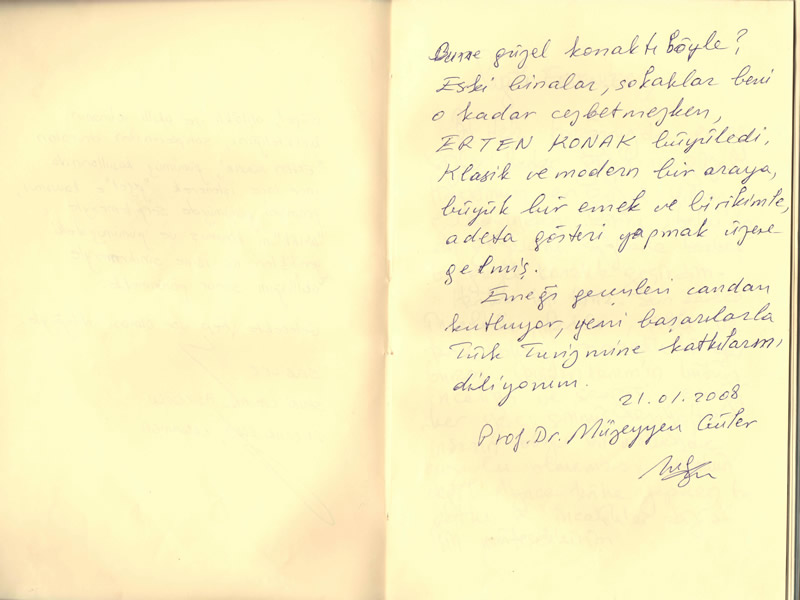 Bu ne güzel konaktı böyle?
Eski binalar, sokaklar beni
o kadar cezbetmezken,
ERTEN KONAK büyüledi.
Klasik ve modern bir araya,
büyük bir emek ve birikimle,
adeta gösteri yapmak üzere
gelmiş.
Emeği geçenleri candan
kutluyor, yeni başarılarla
Türk Turizmine katkılarını
diliyorum.
21.01.2008
Prof. Dr. Müzeyyen Güler